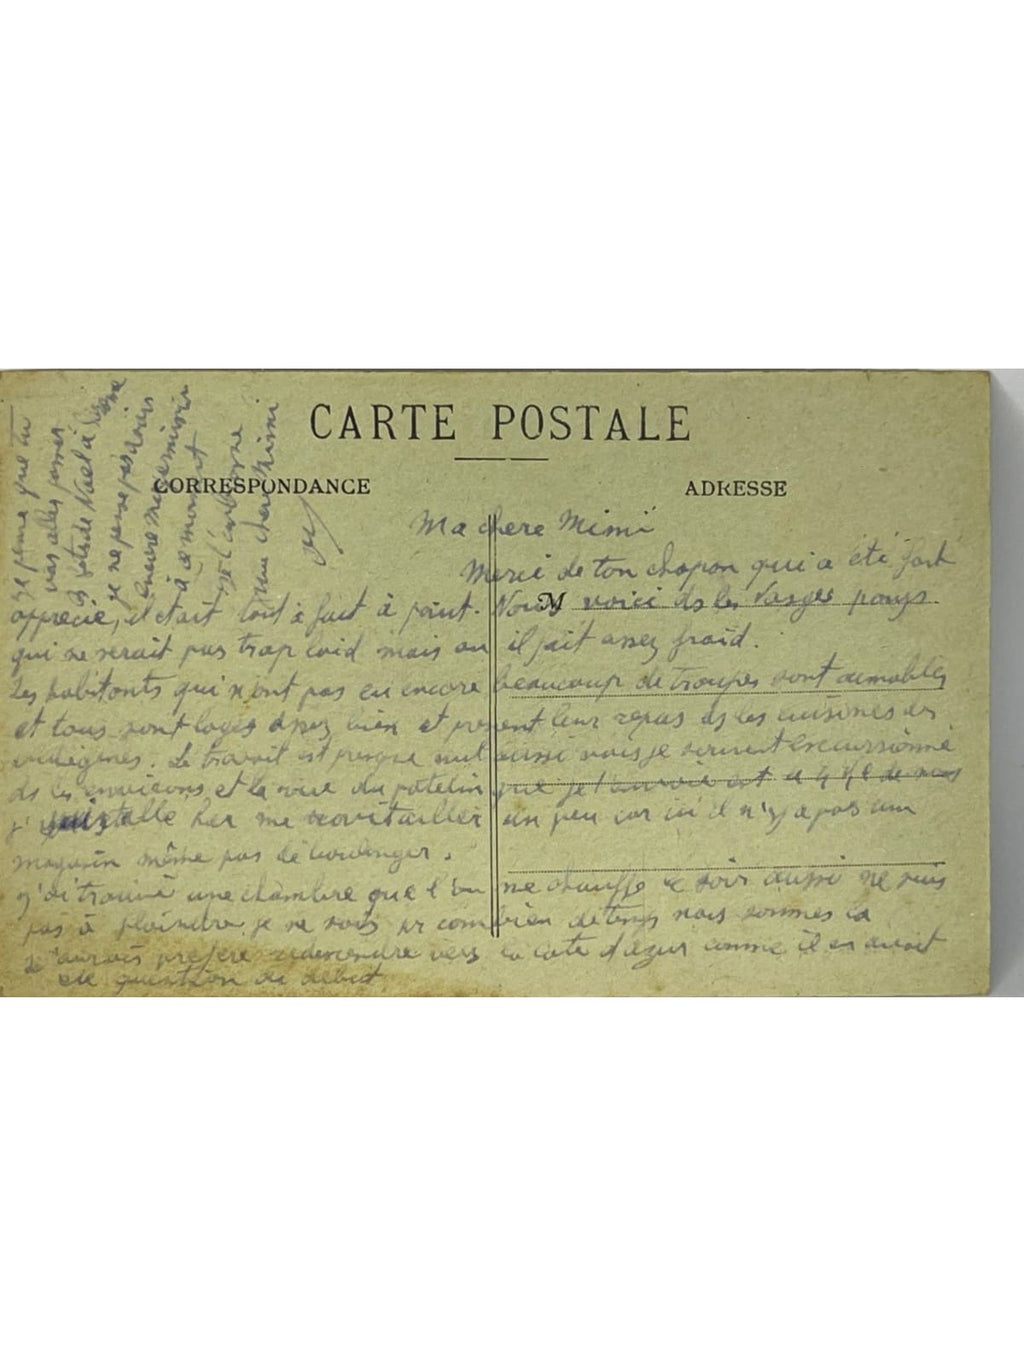 CARTE POSTALE
CORRESPONDANCE
ADRESSE
M
Ma chere Mimi
Merci de ton chapon qui a été fort
apprecié, il etait tout à fait à point. Nous voici ds les Vosges pays
qui ne serait pas trop laid mais ou il fait assez froid.
Les habitants qui n'ont pas eu encore beaucoup de troupes sont aimables
et tous sont logés assez bien et prennent leur repas ds les cuisines des
indigenes. Le travail est presque nul aussi vais je souvent excursionné
ds les environs et la vue du patelin que je t'envoie est a 4 K de nous
j'y suis allé hier me ravitailler un peu car ici il n'y a pas un
magasin même pas de boulanger.
J'ai trouvé une chambre que l'on me chauffe le soir aussi ne suis
pas à plaindre je ne sais pr combien de temps nous sommes la
J'aurais préféré redescendre vers la cote d'azur comme il en avait
ete question au debut.
Je pense que tu
vas aller passer
les fetes de Noel à
je ne pense pas avoir
encore ma permission
à ce moment
Je t'embrasse
ma chere Mimi